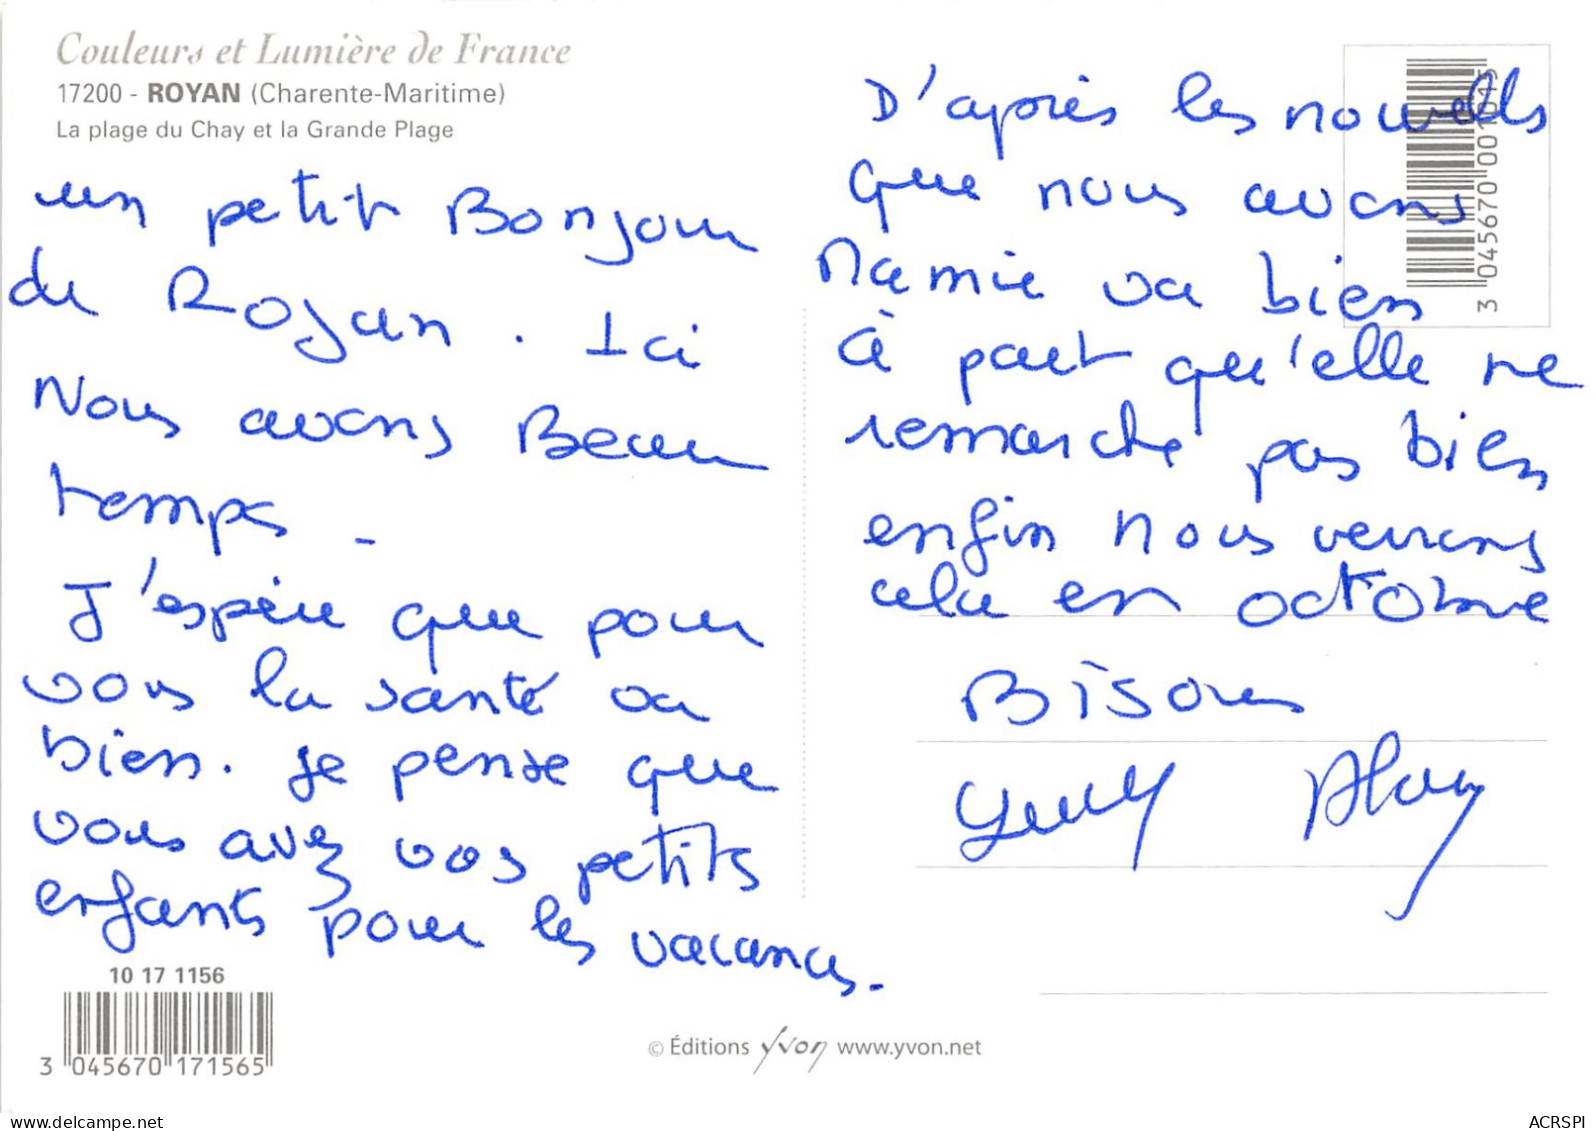 Couleurs et Lumière de France
17200 - ROYAN (Charente-Maritime)
La plage du Chay et la Grande Plage
un petit Bonjour
de Royan. Ici
Nous avons Beau
temps -
J'espère que pour
vous la santé va
bien. Je pense que
vous avez vos petits
enfants pour les vacances.
10 17 1156
3 045670 171565
D'après les nouvells
que nous avons
Mamie va bien
à part qu'elle ne
remarche pas bien
enfin Nous verrons
cela en octobre
Bisous
3 045670 001015
© Éditions Yvon www.yvon.net
delcampe.net
ACRSPI